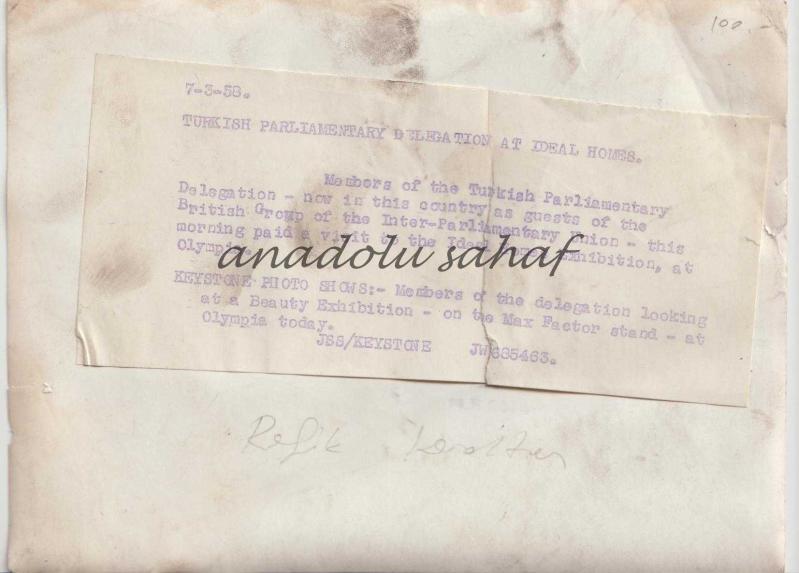 100.-
7-3-58.
TURKISH PARLIAMENTARY DELEGATION AT IDEAL HOMES.
Members of the Turkish Parliamentary
Delegation - now in this country as guests of the
British Group of the Inter-Parliamentary Union - this
morning paid a visit to the Ideal Homes Exhibition, at
Olympia.
anadolu sahaf
KEYSTONE PHOTO SHOWS:- Members of the delegation looking
at a Beauty Exhibition - on the Max Factor stand - at
Olympia today.
JSS/KEYSTONE JW685463.
Refik